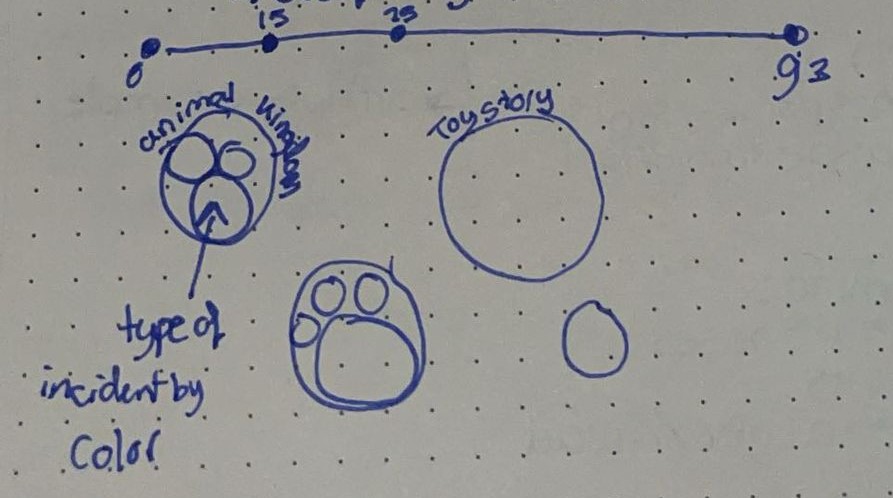 15 25
0 93
animal kingdom
Toystory
type of
incident by
Color